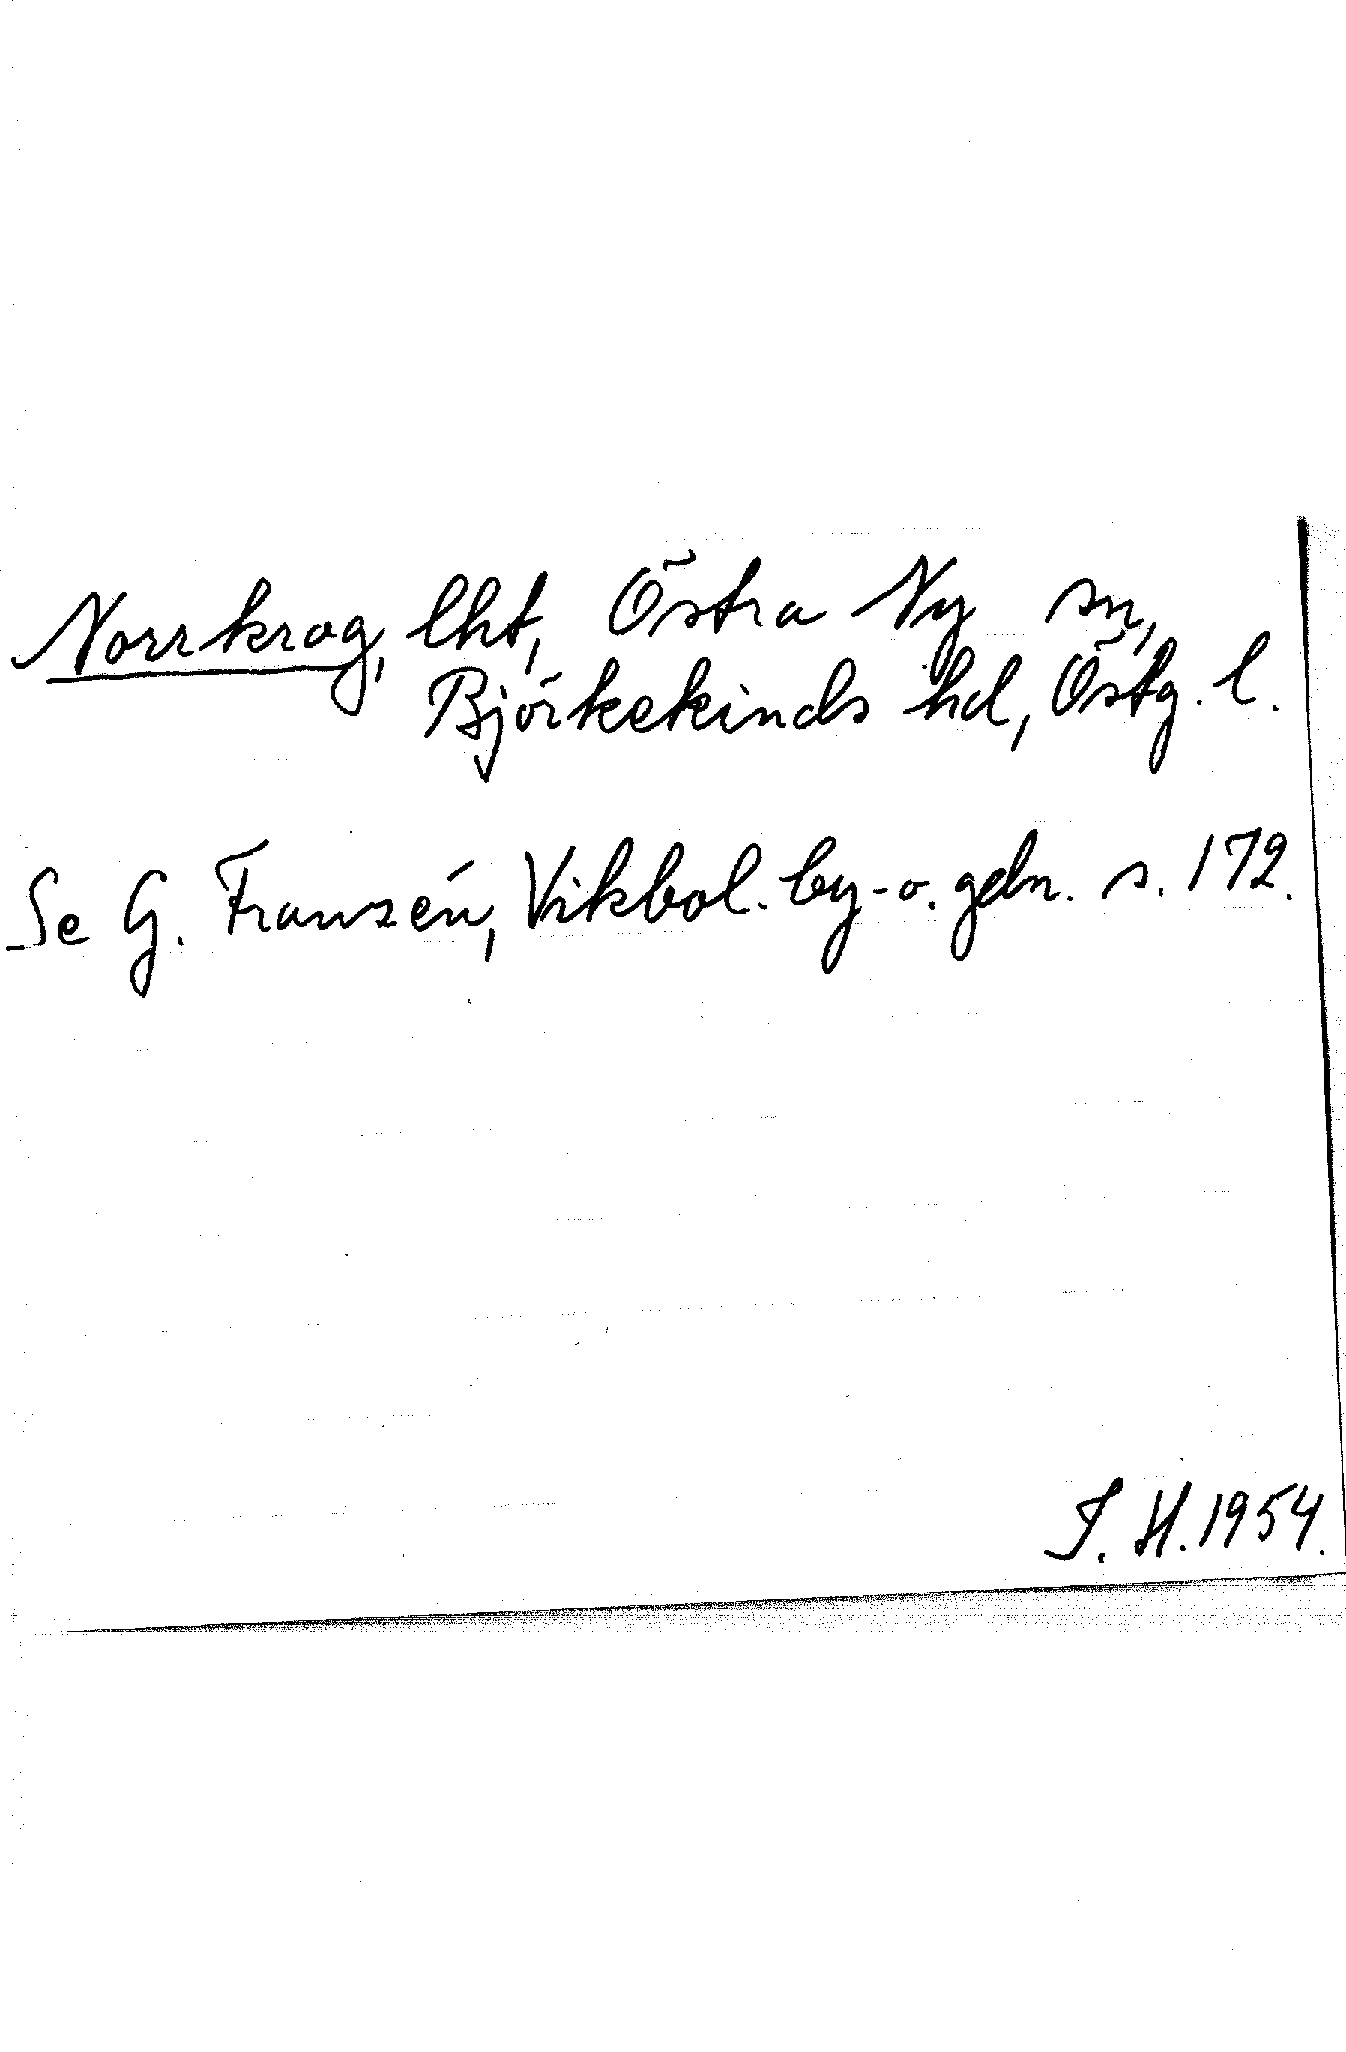 Norrkrog, lht, Östra Ny sn,
Björkekinds hd, Östg. l.
Se G. Franzén, Vikbol. by- o. gdn. s. 172.
I. H. 1954.